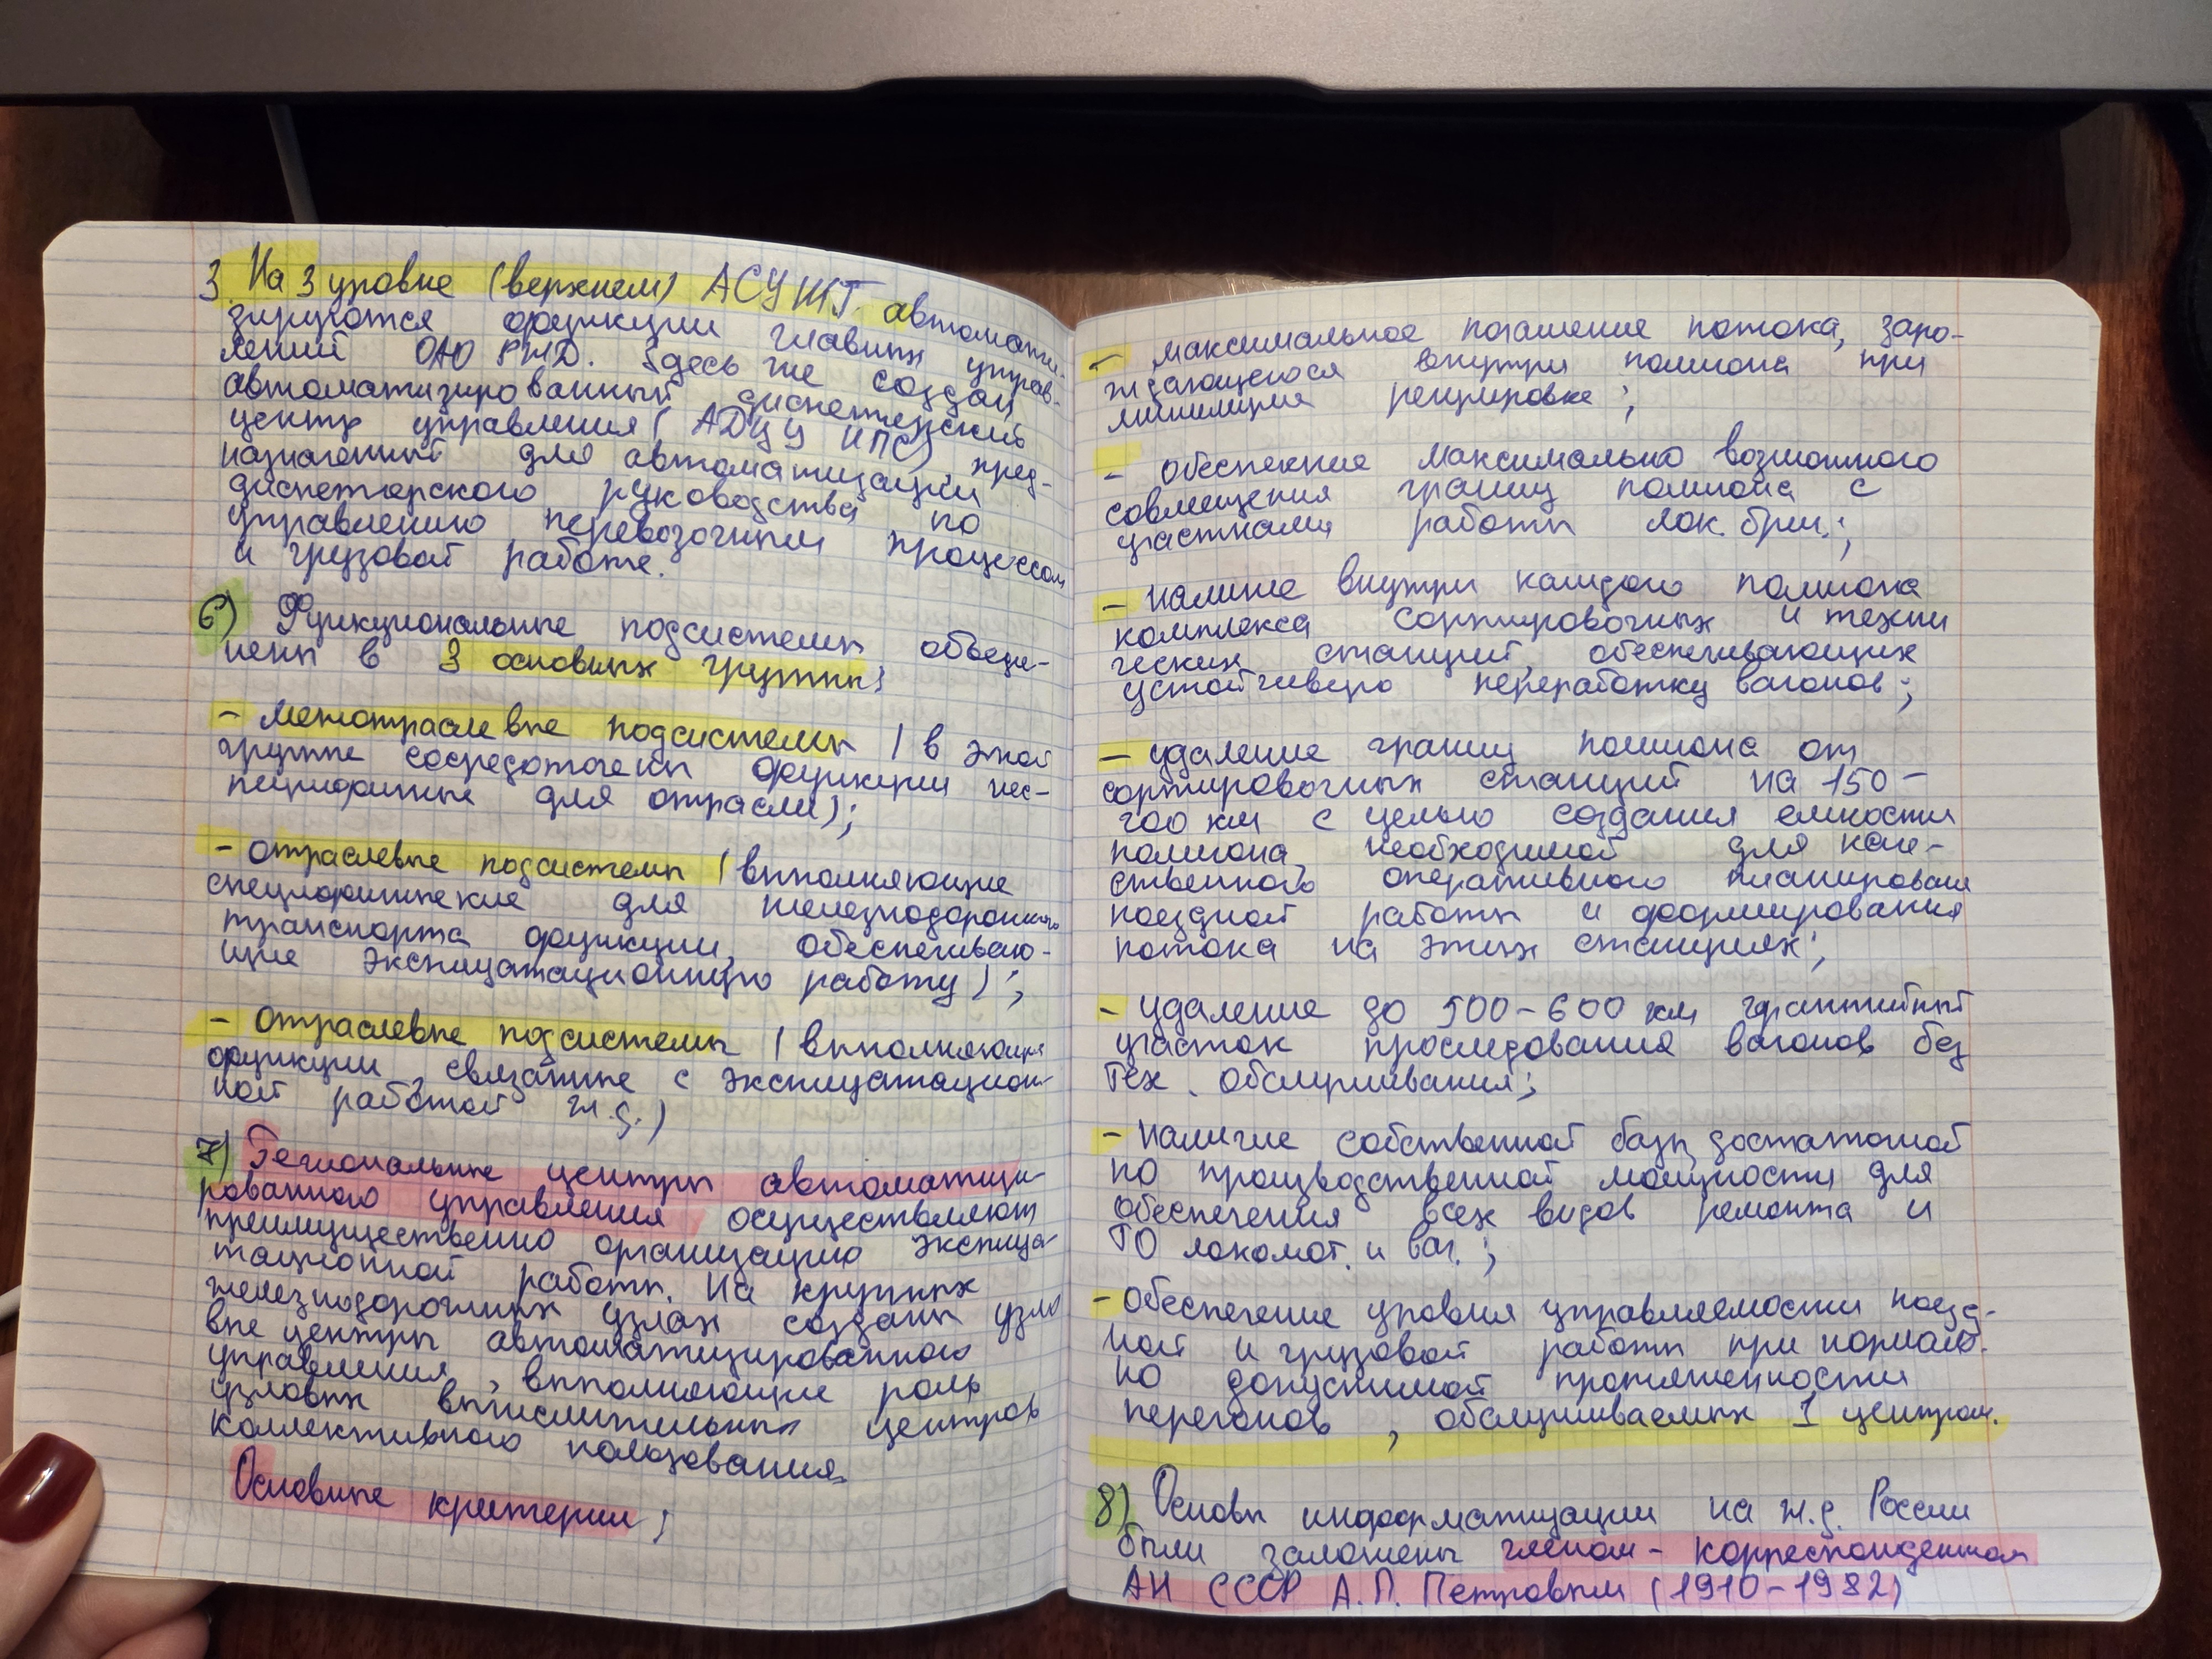 3. На 3 уровне (верхнем) АСУЖТ автомати-
зируются функции главных управ-
лений ОАО РЖД. Здесь же создан
автоматизированный диспетчерский
центр управления (АДЦУ МПС), пред-
назначенный для автоматизации
диспетчерского руководства по
управлению перевозочным процессом
и грузовой работе.
6) Функциональные подсистемы объеди-
нены в 3 основных группы:
- межотраслевые подсистемы (в этой
группе сосредоточены функции нес-
пецифичные для отрасли);
- отраслевые подсистемы (выполняющие
специфические для железнодорожного
транспорта функции, обеспечиваю-
щие эксплуатационную работу);
- отраслевые подсистемы (выполняющие
функции, связанные с эксплуатацион-
ной работой ж.д.)
7) Региональные центры автоматизи-
рованного управления осуществляют
преимущественно организацию эксплуа-
тационной работы. На крупных
железнодорожных узлах созданы узло
вые центры автоматизированного
управления, выполняющие роль
узловых вычислительных центров
коллективного пользования.
Основные критерии:
- максимальное погашение потока, заро-
ждающегося внутри полигона при
минимуме регулировке;
- обеспечение максимально возможного
совмещения границ полигона с
участками работы лок. бриг.;
- наличие внутри каждого полигона
комплекса сортировочных и техни
ческих станций, обеспечивающих
устойчивую переработку вагонов;
- удаление границ полигона от
сортировочных станций на 150-
200 км с целью создания емкости
полигона, необходимой для каче-
ственного оперативного планирован
поездной работы и формирования
потока на этих станциях;
- удаление до 500-600 км гарантийный
участок проследования вагонов без
тех. обслуживания;
- наличие собственной базы достаточной
по производственной мощности для
обеспечения всех видов ремонта и
ТО локомот. и ваг.;
- обеспечение уровня управляемости поезд-
ной и грузовой работы при нормаль.
но допустимой протяженности
перегонов, обслуживаемых 1 центром.
8) Основы информатизации на ж.д. России
были заложены членом-корреспондентом
АН СССР А.П. Петровым (1910-1982)